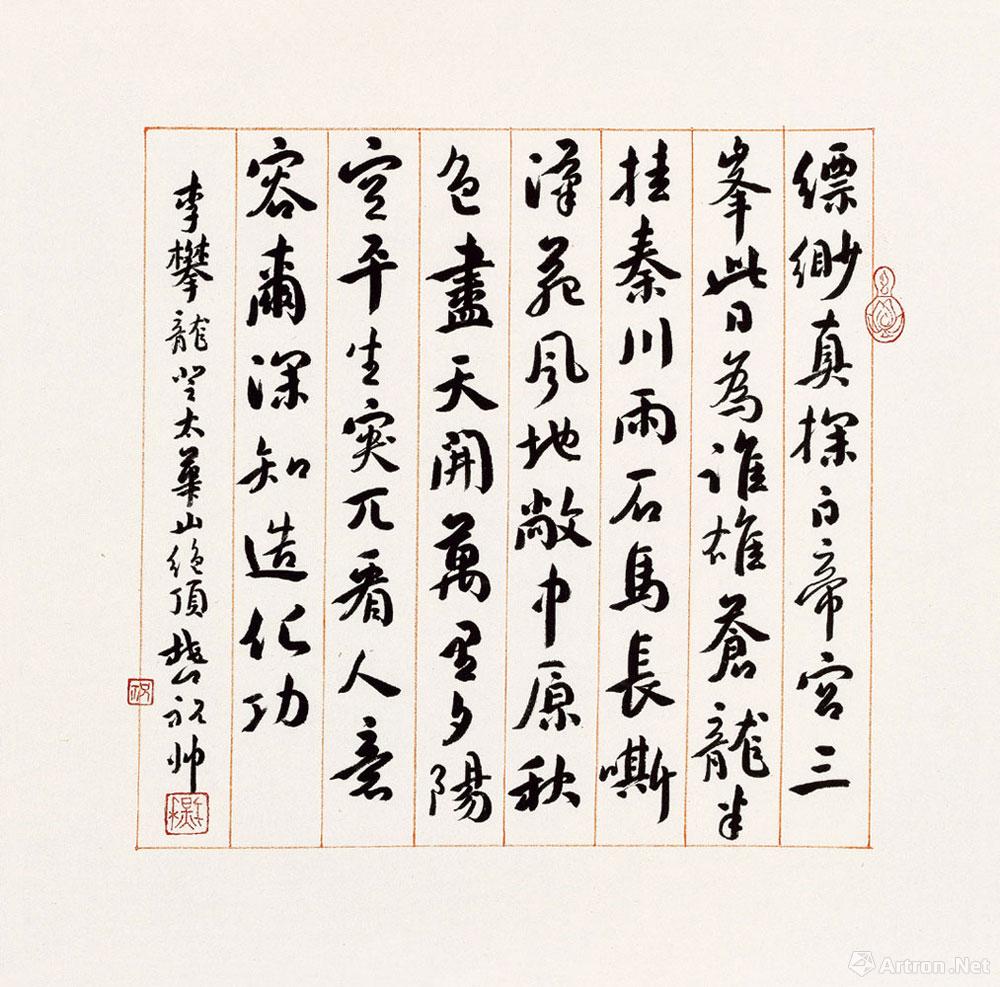 縹緲真探白帝宮三
峯此日為誰雄蒼龍半
挂秦川雨石馬長嘶
漢苑風地敞中原秋
色盡天開萬里夕陽
空平生突兀看人意
容爾深知造化功
李攀龍登太華山絕頂 祝帅
Artron.Net